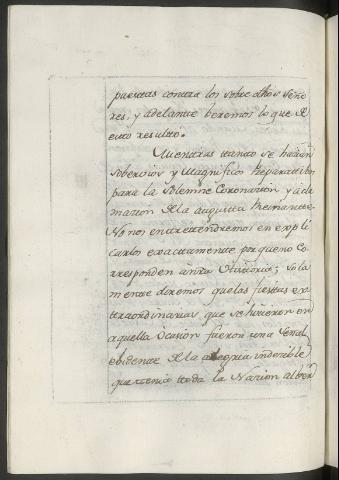 puestas contra los sobre dhos Seño
res, y adelante beremos lo que de
esto resultó.
Mientras tanto se hacian
sobervios, y Magnificos Preparativos
para la Solemne Coronacion y acla
macion de la augusta Reinante.
No nos entretendremos en expli
carlos exactamente por que no Co
rresponden a ntra Historia; sola
mente diremos que las fiestas ex
traordinarias, que se hicieron en
aquella Ocasion fueron una Señal
ebidente de la alegria indecible
que tenia toda la Nacion al ber